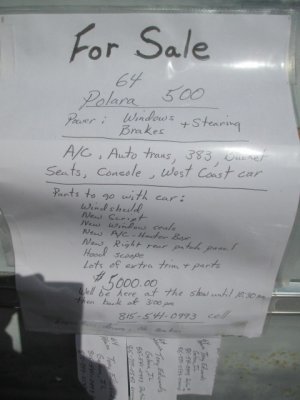 For Sale
64
Polara 500
Power: Windows + Stearing
Brakes
A/C, Auto trans, 383, Bucket
Seats, Console, West Coast car
Parts to go with car:
Windsheild
New Script
New window seals
New A/C - Heater Box
New Right rear patch panel
Hood scoope
Lots of extra trim + parts
$5000.00
Will be here at the show until 10:30 am
then back at 3:00 pm
815-541-0993 cell